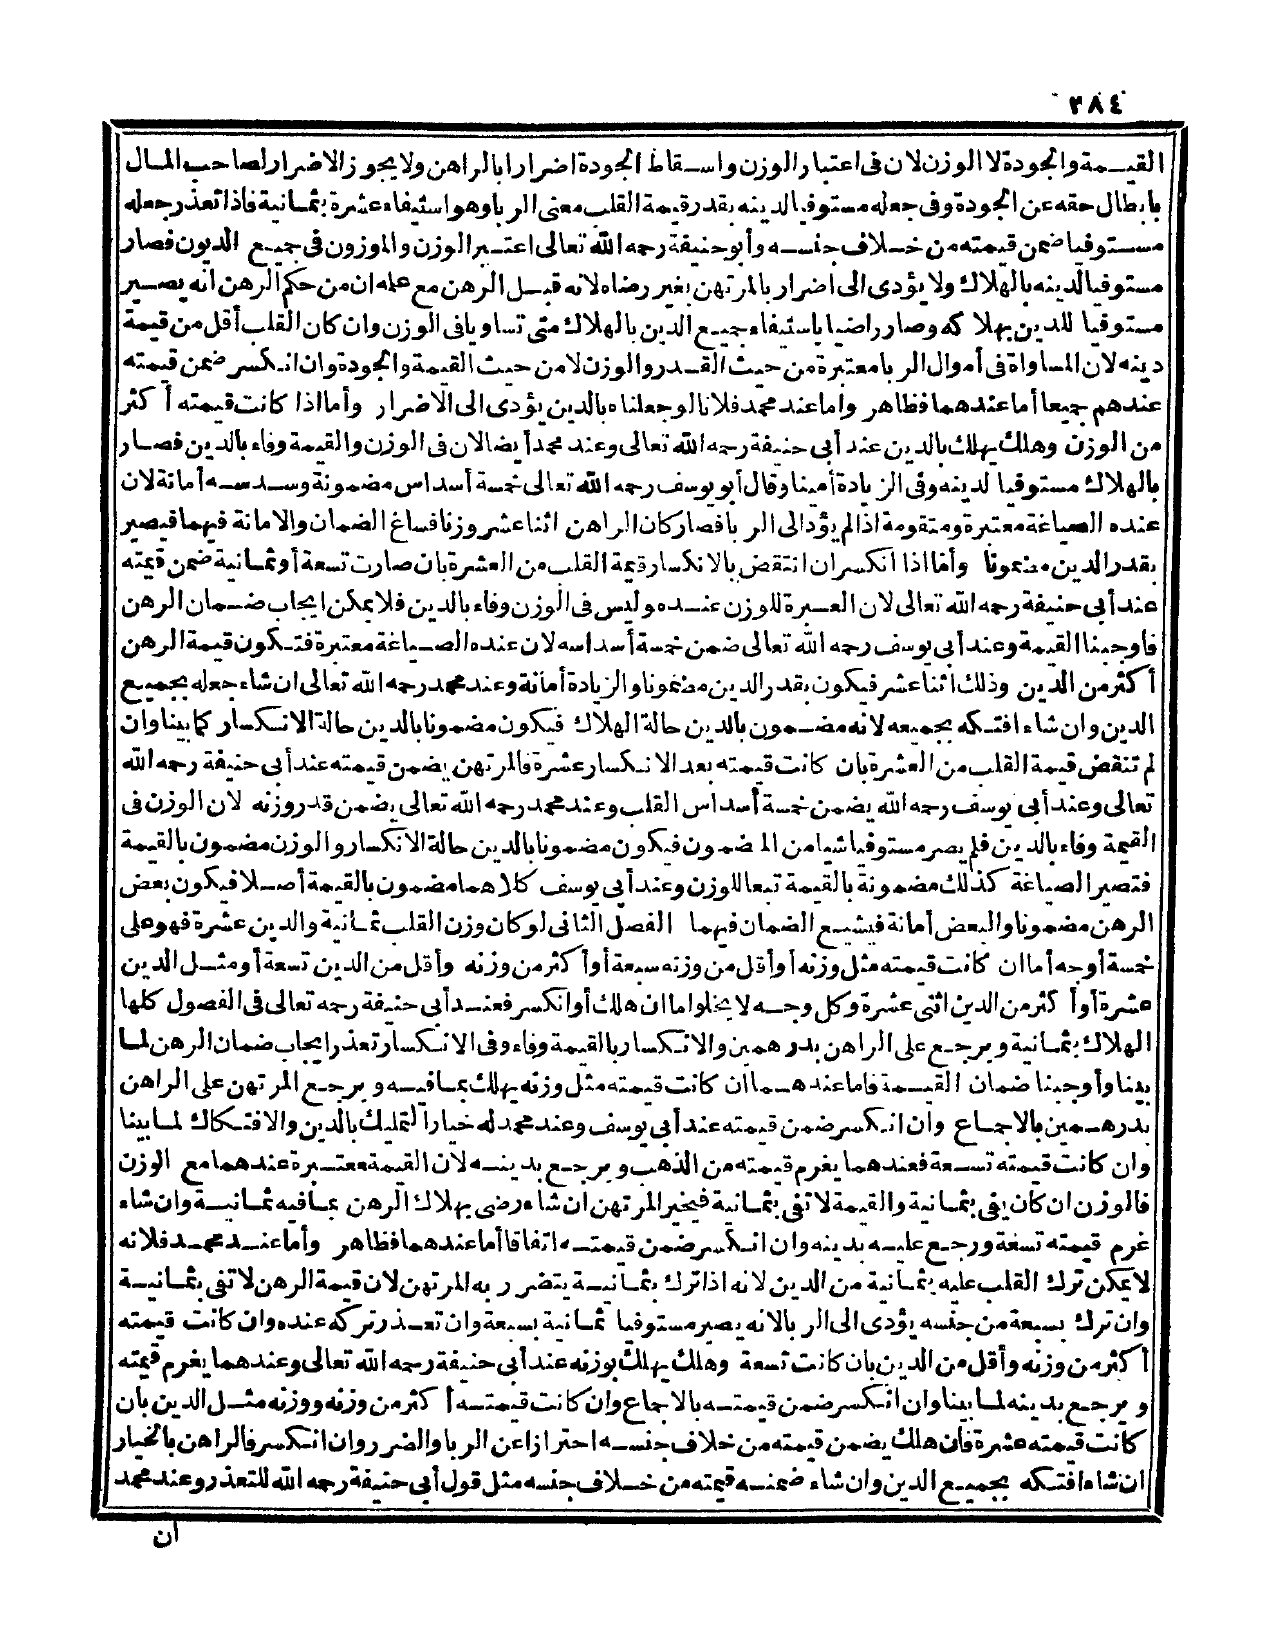 ٢٨٤
القيمة والجودة لا الوزن لان فى اعتبار الوزن واسقاط الجودة اضرارا بالراهن ولا يجوز الاضرار لصاحب المال
بابطال حقه عن الجودة وفى جعله مستوفيا لدينه بقدر قيمة القلب معنى الربا وهو استيفاء عشرة بثمانية فاذا تعذر جعله
مستوفيا ضمن قيمته من خلاف جنسه وأبو حنيفة رحمه الله تعالى اعتبر الوزن والموزون فى جميع الديون فصار
مستوفيا لدينه بالهلاك ولا يؤدى الى اضرار بالمرتهن بغير رضاه لانه قبل الرهن مع علمه ان من حكم الرهن انه يصير
مستوفيا للدين بهلاكه وصار راضيا باستيفاء جميع الدين بالهلاك متى تساويا فى الوزن وان كان القلب أقل من قيمة
دينه لان المساواة فى أموال الربا معتبرة من حيث القدر والوزن لا من حيث القيمة والجودة وان انكسر ضمن قيمته
عندهم جميعا أما عندهما فظاهر واما عند محمد فلانا لو جعلناه بالدين يؤدى الى الاضرار وأما اذا كانت قيمته أكثر
من الوزن وهلك يهلك بالدين عند أبى حنيفة رحمه الله تعالى وعند محمد أيضا لان فى الوزن والقيمة وفاء بالدين فصار
بالهلاك مستوفيا لدينه وفى الزيادة أمينا وقال أبو يوسف رحمه الله تعالى خمسة أسداس مضمونة وسدسه أمانة لان
عنده الصياغة معتبرة ومتقومة اذا لم يؤد الى الربا فصار كان الراهن اثنا عشر وزنا فساغ الضمان والامانة فيهما فيصير
بقدر الدين مضمونا وأما اذا انكسر ان انتقض بالانكسار قيمة القلب من العشرة بان صارت تسعة أو ثمانية ضمن قيمته
عند أبى حنيفة رحمه الله تعالى لان العبرة للوزن عنده وليس فى الوزن وفاء بالدين فلا يمكن ايجاب ضمان الرهن
فأوجبنا القيمة وعند أبى يوسف رحمه الله تعالى ضمن خمسة أسداسه لان عنده الصياغة معتبرة فتكون قيمة الرهن
أكثر من الدين وذلك اثنا عشر فيكون بقدر الدين مضمونا والزيادة أمانة وعند محمد رحمه الله تعالى ان شاء جعله بجميع
الدين وان شاء افتكه بجميعه لانه مضمون بالدين حالة الهلاك فيكون مضمونا بالدين حالة الانكسار كما بينا وان
لم تنقض قيمة القلب من العشرة بان كانت قيمته بعد الانكسار عشرة فالمرتهن يضمن قيمته عند أبى حنيفة رحمه الله
تعالى وعند أبى يوسف رحمه الله يضمن خمسة أسداس القلب وعند محمد رحمه الله تعالى يضمن قدر وزنه لان الوزن فى
القيمة وفاء بالدين فلم يصر مستوفيا شيا من المضمون فيكون مضمونا بالدين حالة الانكسار والوزن مضمون بالقيمة
فتصير الصياغة كذلك مضمونة بالقيمة تبعا للوزن وعند أبى يوسف كلاهما مضمون بالقيمة أصلا فيكون بعض
الرهن مضمونا والبعض أمانة فيشيع الضمان فيهما الفصل الثانى لو كان وزن القلب ثمانية والدين عشرة فهو على
خمسة أوجه أما ان كانت قيمته مثل وزنه أو أقل من وزنه سبعة أو أكثر من وزنه وأقل من الدين تسعة أو مثل الدين
عشرة أو أكثر من الدين اثنى عشرة وكل وجه لا يخلو اما ان هلك أو انكسر فعند أبى حنيفة رحمه تعالى فى الفصول كلها
الهلاك بثمانية ويرجع على الراهن بدرهمين والانكسار بالقيمة وفاء وفى الانكسار تعذر ايجاب ضمان الرهن لما
بينا وأوجبنا ضمان القيمة فاما عندهما ان كانت قيمته مثل وزنه يهلك بما فيه ويرجع المرتهن على الراهن
بدرهمين بالاجماع وان انكسر ضمن قيمته عند أبى يوسف وعند محمد له خيار التمليك بالدين والافتكاك لما بينا
وان كانت قيمته تسعة فعندهما يغرم قيمته من الذهب ويرجع بدينه لان القيمة معتبرة عندهما مع الوزن
فالوزن ان كان يفى بثمانية والقيمة لا تفى بثمانية فيخير المرتهن ان شاء رضى بهلاك الرهن بما فيه ثمانية وان شاء
غرم قيمته تسعة ورجع عليه بدينه وان انكسر ضمن قيمته اتفاقا أما عندهما فظاهر وأما عند محمد فلانه
لا يمكن ترك القلب عليه بثمانية من الدين لانه اذا ترك بثمانية يتضرر به المرتهن لان قيمة الرهن لا تفى بثمانية
وان ترك بسبعة من جنسه يؤدى الى الربا لانه يصير مستوفيا ثمانية بسبعة وان تعذر تركه عنده وان كانت قيمته
أكثر من وزنه وأقل من الدين بان كانت تسعة وهلك يهلك بوزنه عند أبى حنيفة رحمه الله تعالى وعندهما يغرم قيمته
ويرجع بدينه لما بينا وان انكسر ضمن قيمته بالاجماع وان كانت قيمته أكثر من وزنه ووزنه مثل الدين بان
كانت قيمته عشرة فان هلك يضمن قيمته من خلاف جنسه احترازا عن الربا والضرر وان انكسر فالراهن بالخيار
ان شاء افتكه بجميع الدين وان شاء ضمنه قيمته من خلاف جنسه مثل قول أبى حنيفة رحمه الله للتعذر وعند محمد
ان